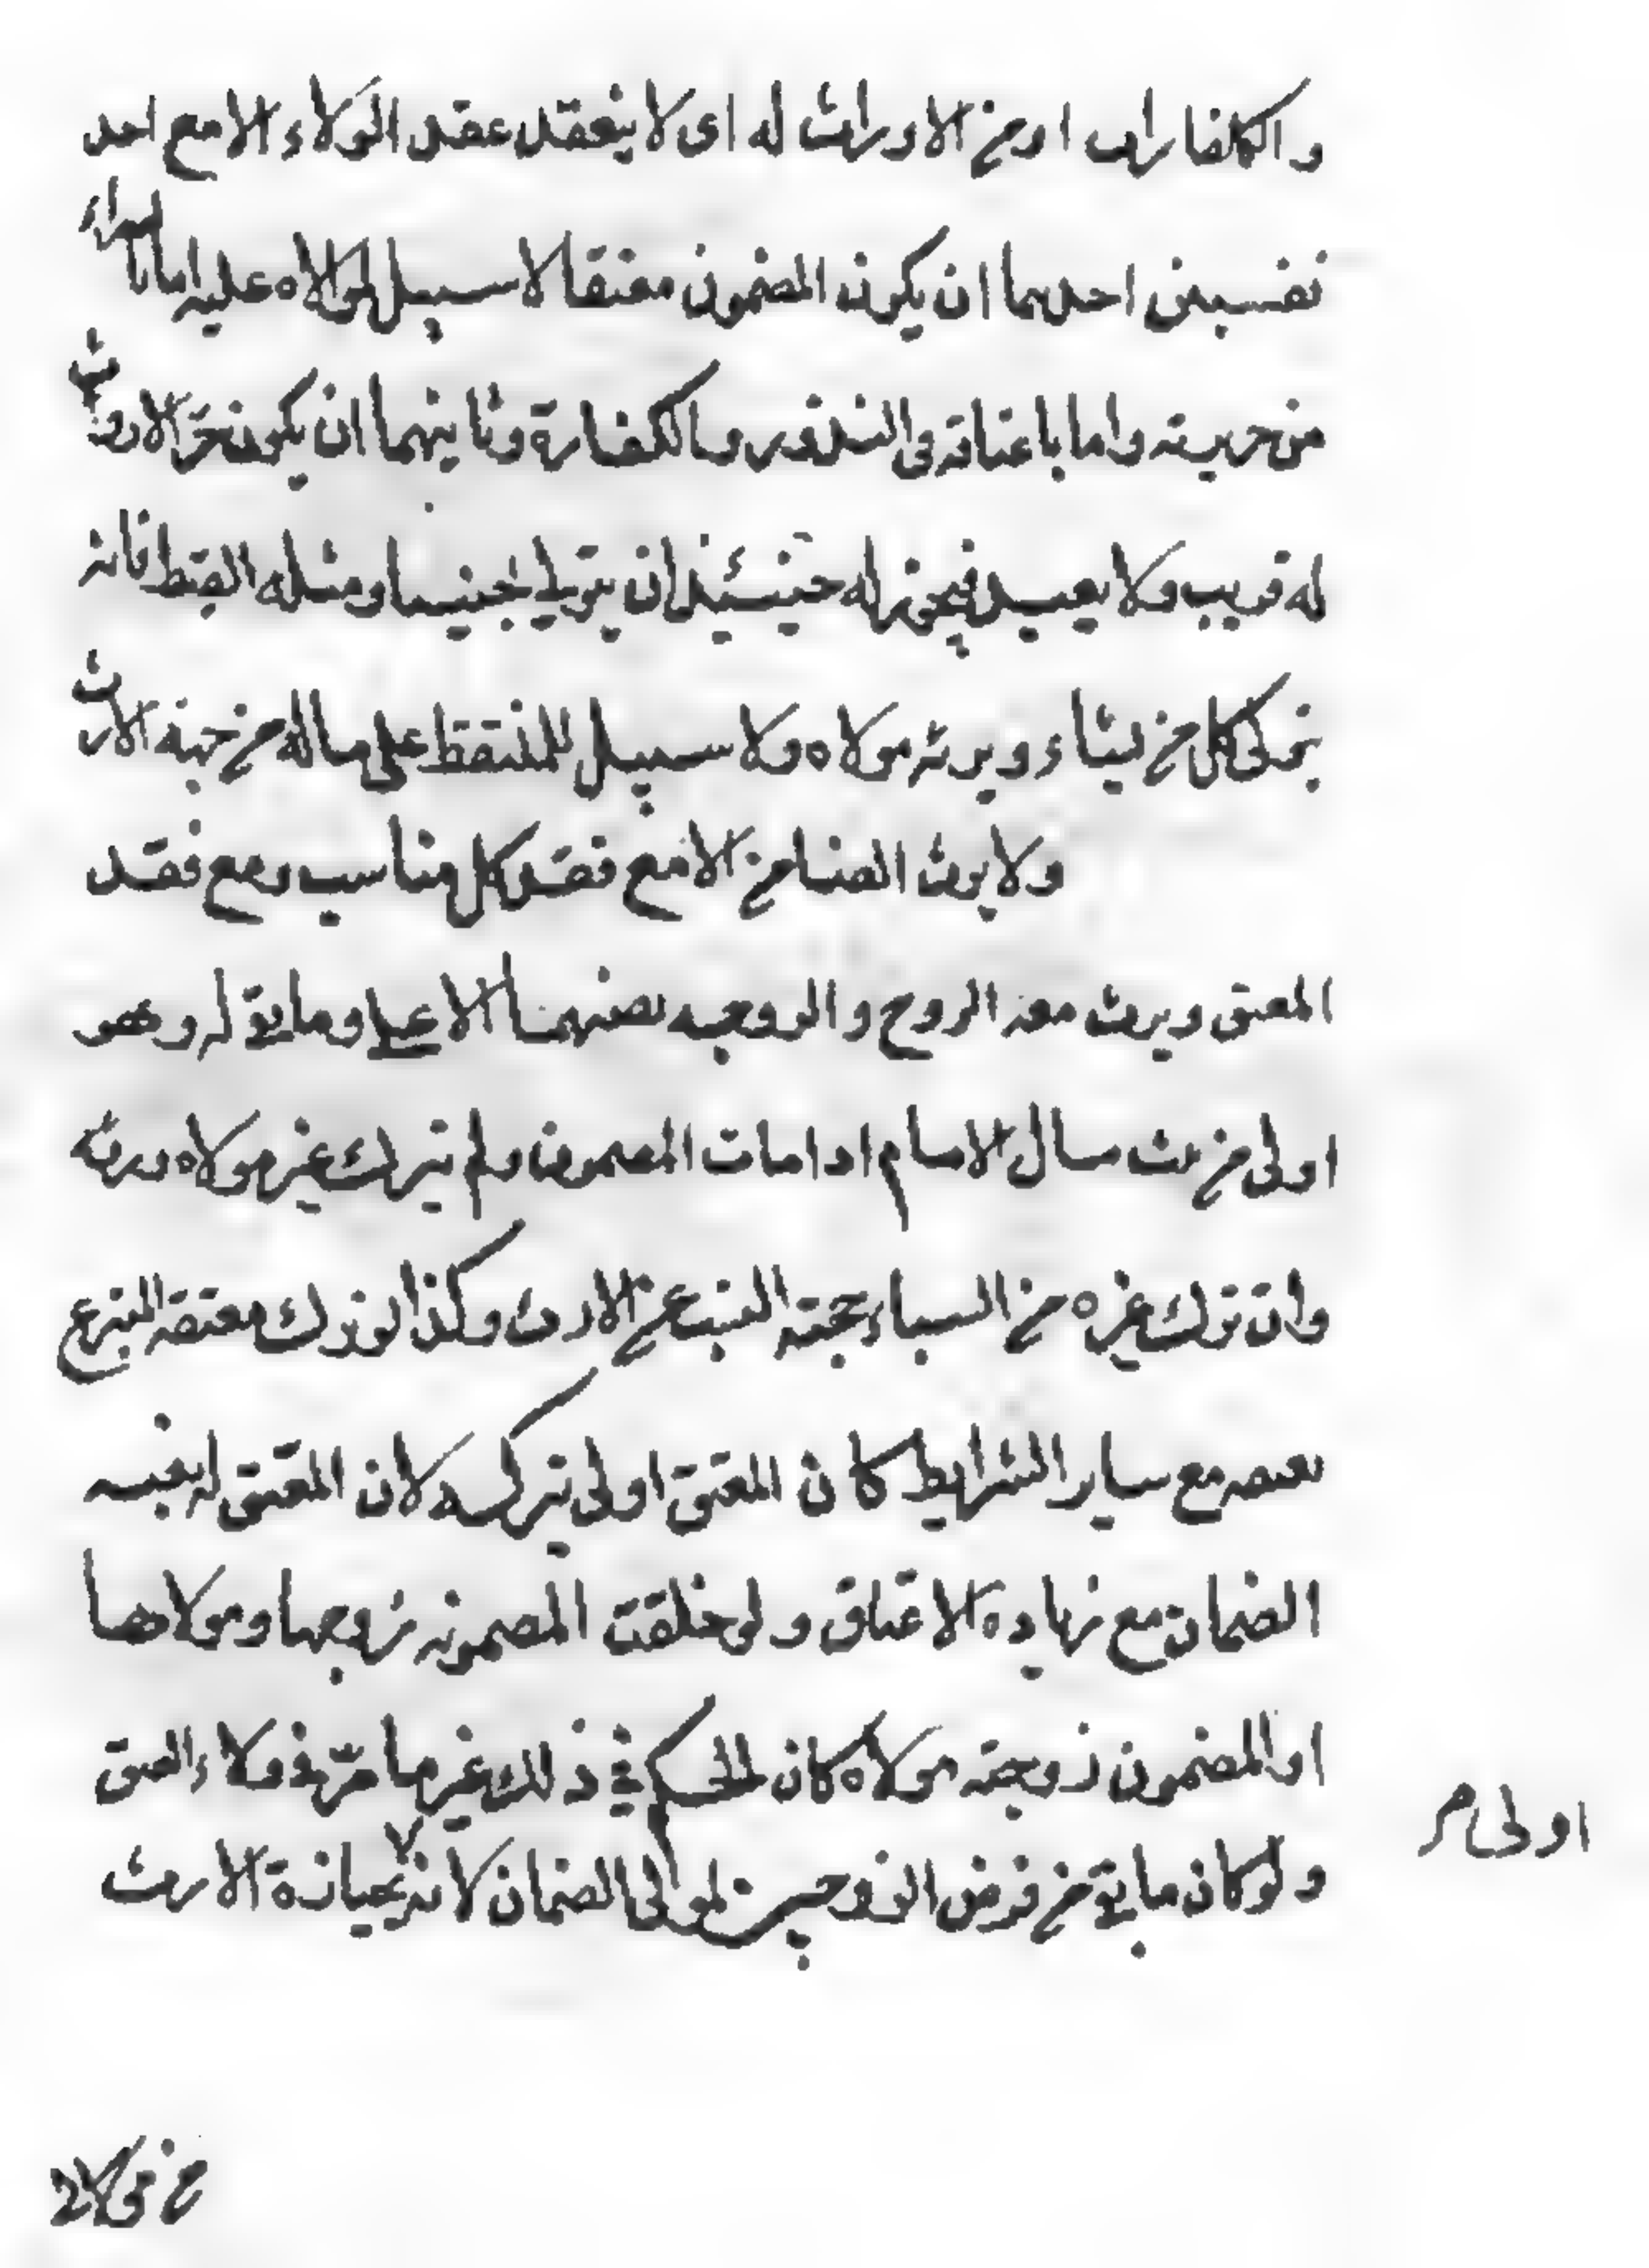 والكفارات او من لا وراث له اى لا ينعقد عقد الولاء الا مع احد
نفسين احدهما ان يكون المضمون معتقا لا سبيل لمولاه عليه اما بابراء
من جريرته واما باعتاقه فى النذور والكفارة وثانيهما ان يكون حرّ الا وارث
له قريب ولا بعيد فيجوز له حينئذ ان يتولى وجنسيما ومثله اللقيط فانه
يتولى كل من يشاء ويرثه مولاه ولا سبيل للملتقط على ماله من جهة الارث
ولا يرث الضامن الا مع فقد كل مناسب ومع فقد
المعتق ويرث معه الزوج والزوجه نصيبهما الاعلى وما بقى له وهو
اولى من بيت مال الامام اذا مات المضمون ولم يترك غير مولاه ورثه
وان ترك غيره من النسباء حجبه النسب عن الارث وكذا لو ترك معتقه المتبرع
بعتقه مع ساير الشرايط كان المعتق اولى بتركته لان المعتق له نفسه
الضمان مع زيادة الاعتاق ولو خلفت المضمونه زوجها ومولاها
او المضمون زوجته مولاه كان الحكم فى ذلك غير ما مرّ فى ولاء العتق
ولو كان ما بقى من فرض الزوجين لموالى الضمان لانه بحيازة الارث
اولى م
من مولا